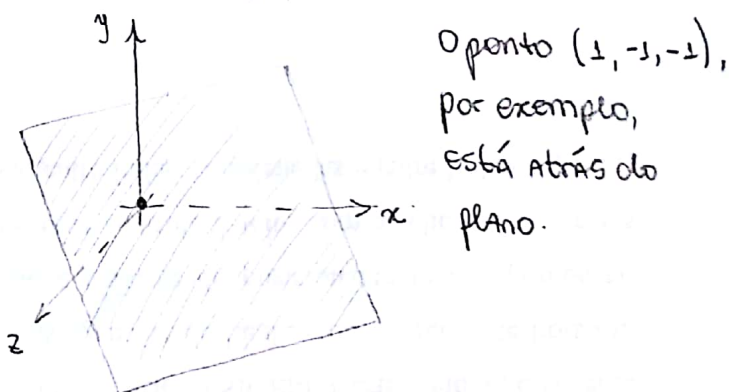 y
O ponto (1, -1, -1),
por exemplo,
está atrás do
plano.
x
z